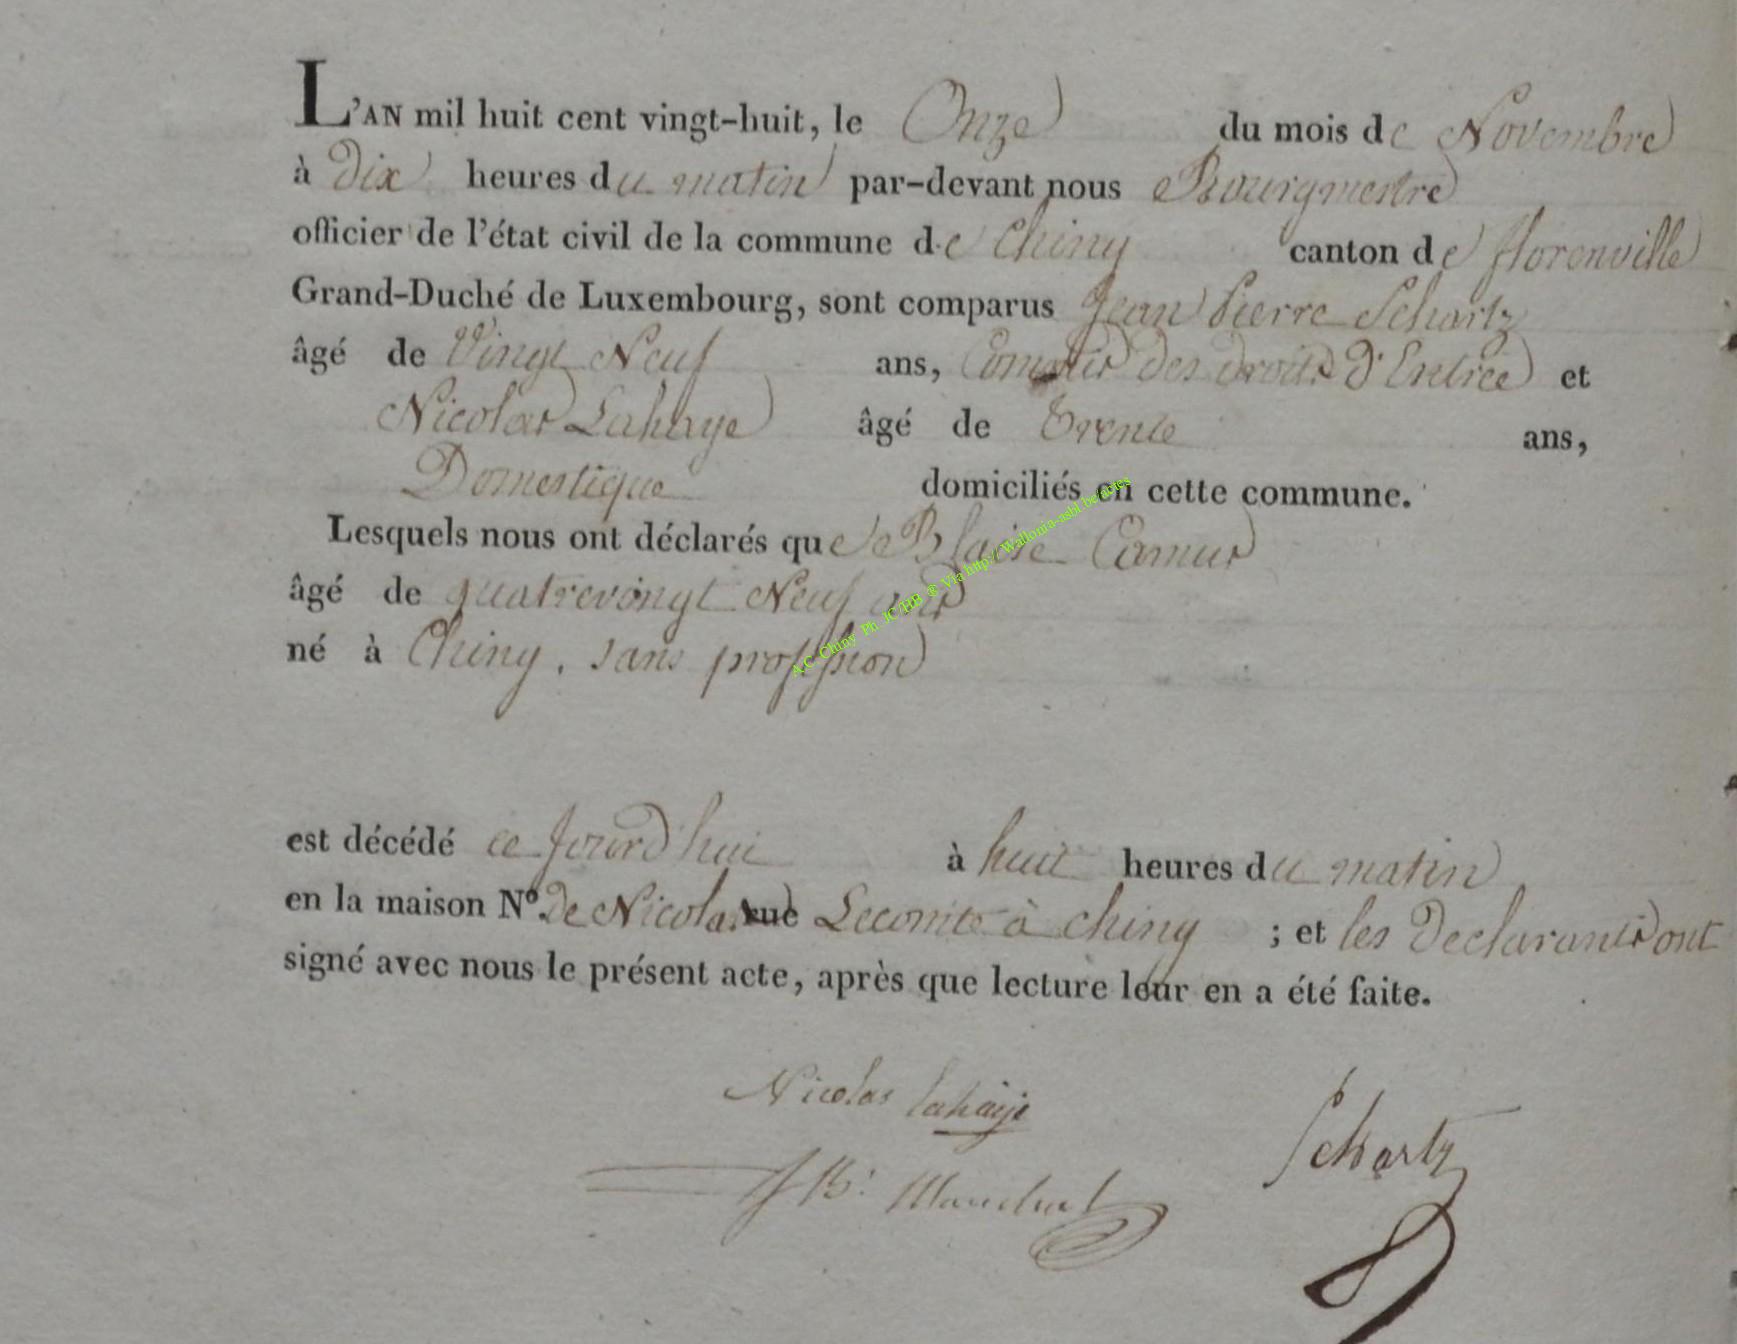 L'AN mil huit cent vingt-huit, le Onze du mois de Novembre
à Dix heures du matin par-devant nous Bourgmestre
officier de l'état civil de la commune de Chiny canton de florenville
Grand-Duché de Luxembourg, sont comparus Jean Pierre Schartz
âgé de Vingt Neuf ans, Commis des droits d'Entrée et
Nicolas Lahaye âgé de Trente ans,
Domestique domiciliés en cette commune.
Lesquels nous ont déclarés que Blaise Camus
âgé de quatrevingt Neuf ans
né à Chiny, sans profession
A.C. Chiny Ph IC/HB ® Via http://Wallonia-asbl.be/actes
est décédé ce Jourd'hui à huit heures du matin
en la maison N° de Nicolas rue Lecomte à chiny ; et les Declarants ont
signé avec nous le présent acte, après que lecture leur en a été faite.
Nicolas lahaije
Schartz